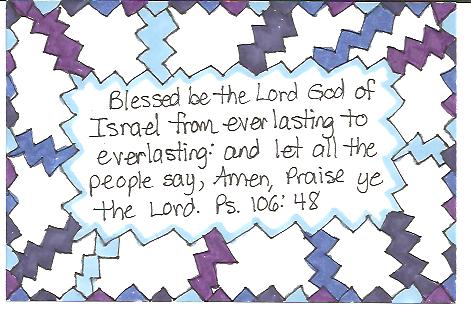 Blessed be the Lord God of
Israel from everlasting to
everlasting: and let all the
people say, Amen, Praise ye
the Lord. Ps. 106:48